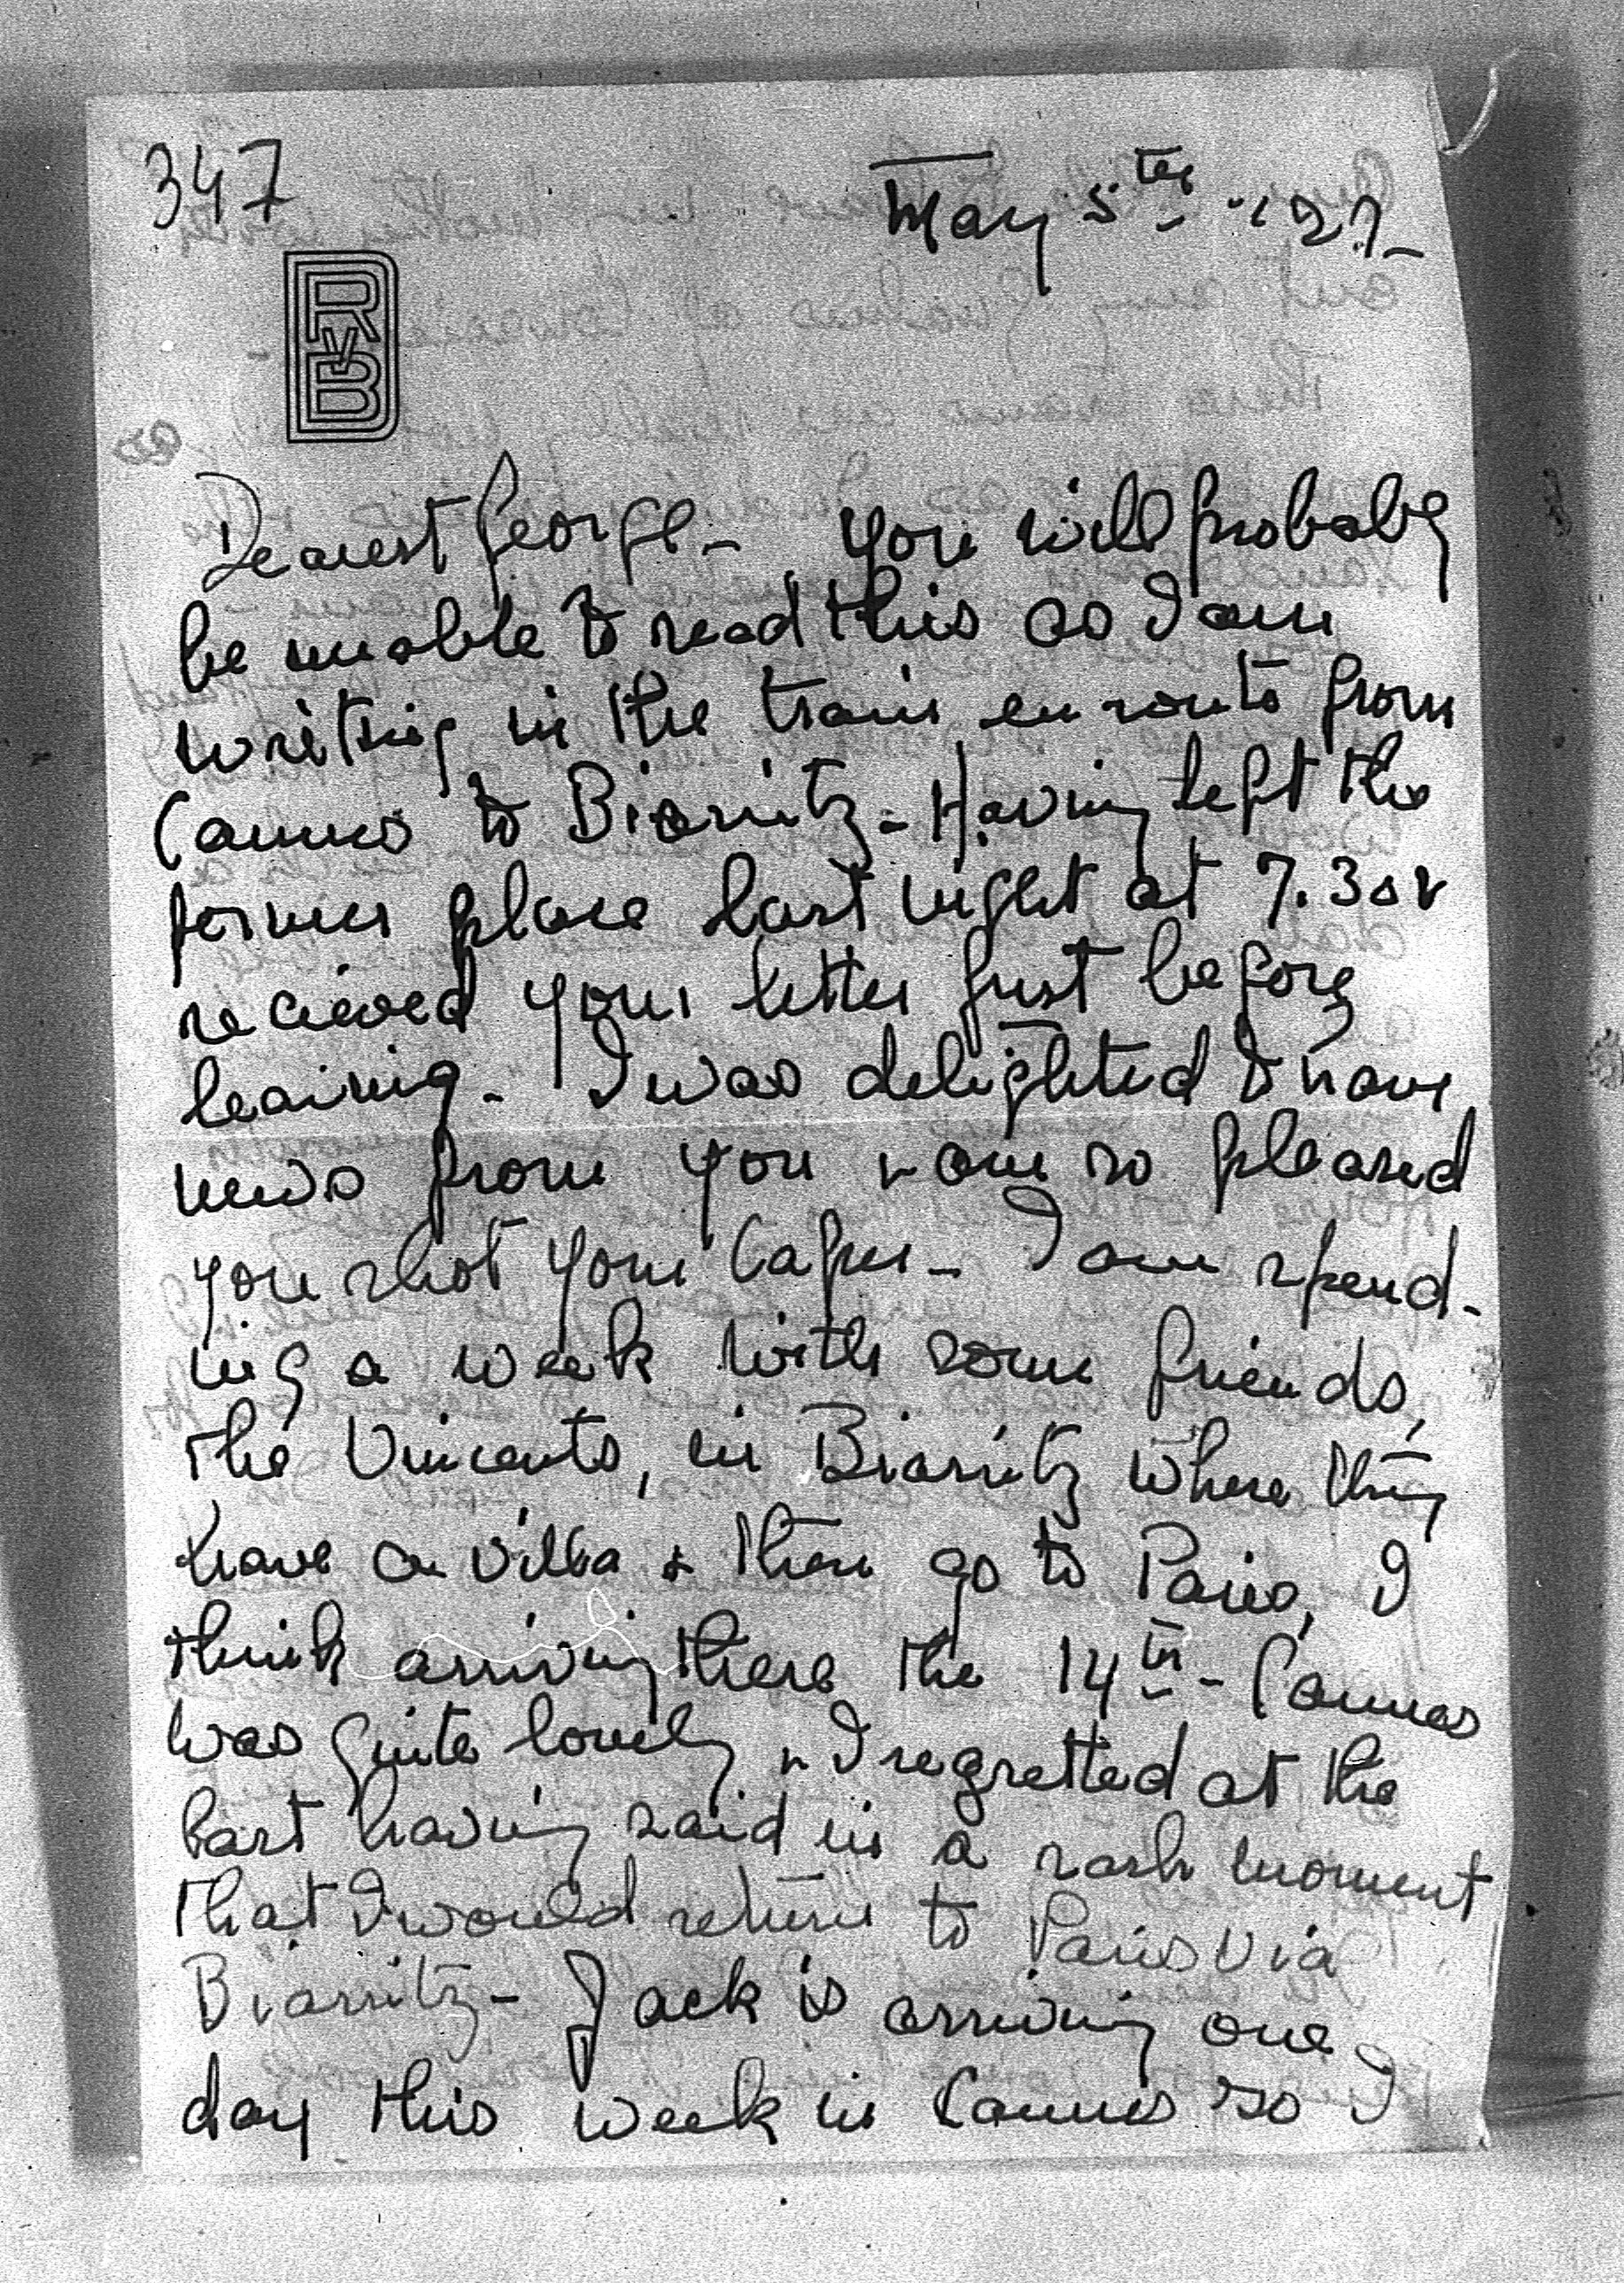 347
May 5th - '27
RVB
Dearest George - you will probably
be unable to read this as I am
writing in the train en route from
Cannes to Biarritz - Having left the
former place last night at 7.30 &
recieved your letter just before
leaving - I was delighted to have
news from you & am so pleased
you shot your Caper - I am spend-
ing a week with some friends,
the Vincents, in Biarritz where they
have a villa & then go to Paris, I
think arriving there the 14th - Cannes
was quite lovely & I regretted at the
last having said in a rash moment
that I would return to Paris via
Biarritz - Jack is arriving one
day this week in Cannes so I